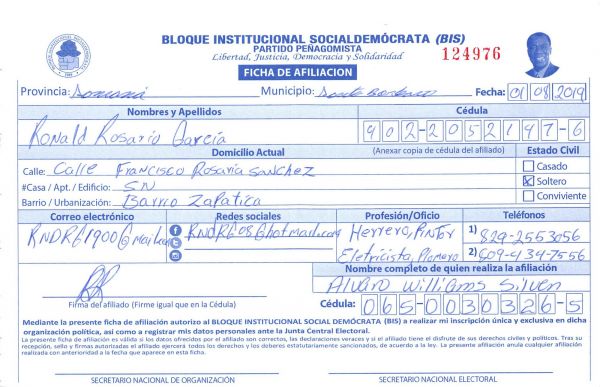 BLOQUE INSTITUCIONAL SOCIALDEMÓCRATA (BIS)
PARTIDO PEÑAGOMISTA
Libertad, Justicia, Democracia y Solidaridad
124976
FICHA DE AFILIACION
Provincia: Municipio: Santo Fecha: 01/08/2019
Nombres y Apellidos Cédula
Ronald Rosario García 402-2052197-6
Domicilio Actual (Anexar copia de cédula del afiliado) Estado Civil
Calle: Calle Francisco Rosario Sanchez Casado
#Casa / Apt. / Edificio: SN Soltero
Barrio / Urbanización: Barrio Zapatica Conviviente
Correo electrónico Redes sociales Profesión/Oficio Teléfonos
RNDRG1900@mail.com RNDRG08@hotmail.com Herrero, Pintor 1) 829-2553056
Eletricista, Plomero 2) 809-434-7556
Nombre completo de quien realiza la afiliación
Alvaro Williams Silven
Firma del afiliado (Firme igual que en la Cédula) Cédula: 065-0030326-5
Mediante la presente ficha de afiliación autorizo al BLOQUE INSTITUCIONAL SOCIAL DEMÓCRATA (BIS) a realizar mi inscripción única y exclusiva en dicha
organización política, así como a registrar mis datos personales ante la Junta Central Electoral.
La presente ficha de afiliación es válida si los datos ofrecidos por el afiliado son correctos, las declaraciones veraces y si el afiliado tiene el disfrute de sus derechos civiles y políticos. Tras su
recepción, sello y firmas autorizadas el afiliado ejercerá todos los derechos y los deberes estatutariamente sancionados, de acuerdo a la ley. La presente afiliación anula cualquier afiliación
realizada con anterioridad a la fecha que aparece en esta ficha.
SECRETARIO NACIONAL DE ORGANIZACIÓN SECRETARIO NACIONAL ELECTORAL